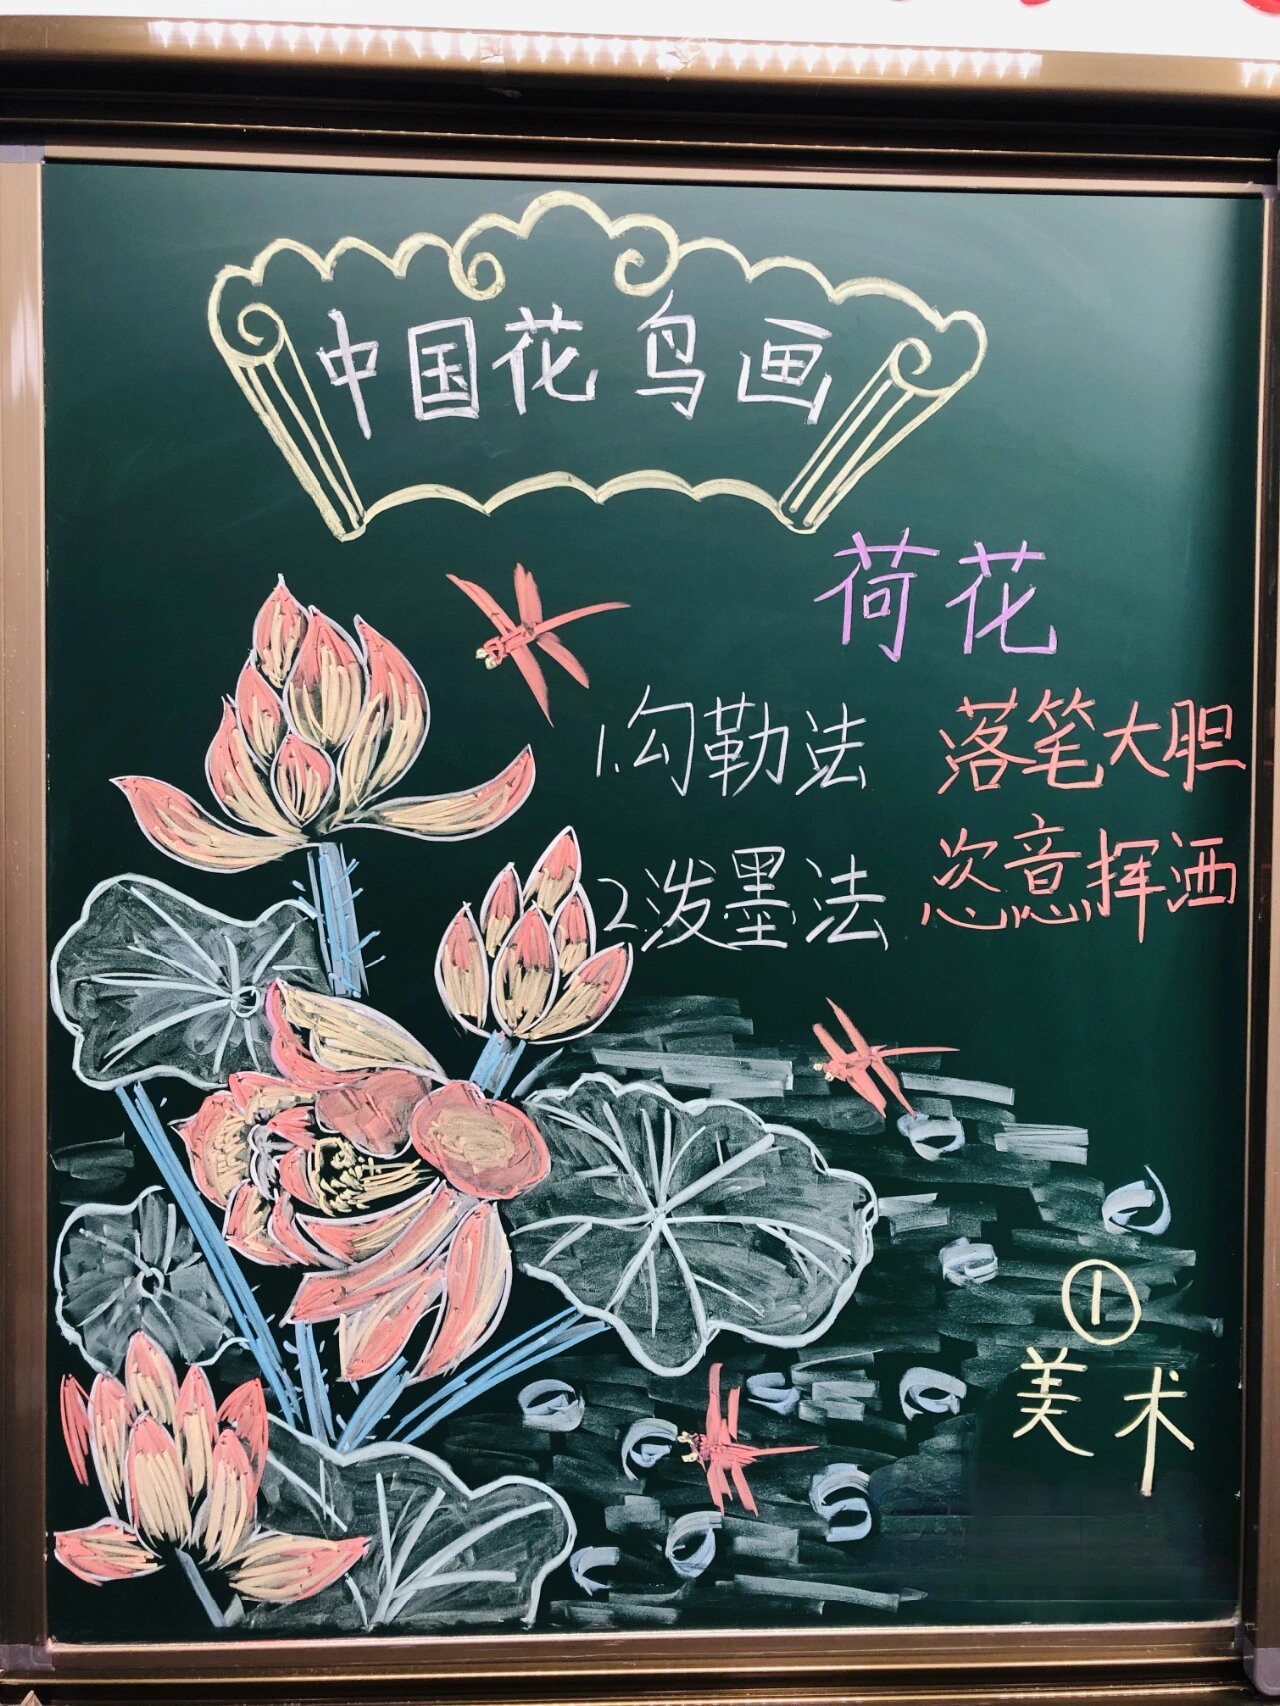 中国花鸟画
荷花
1.勾勒法
落笔大胆
2.泼墨法
恣意挥洒
①
美术